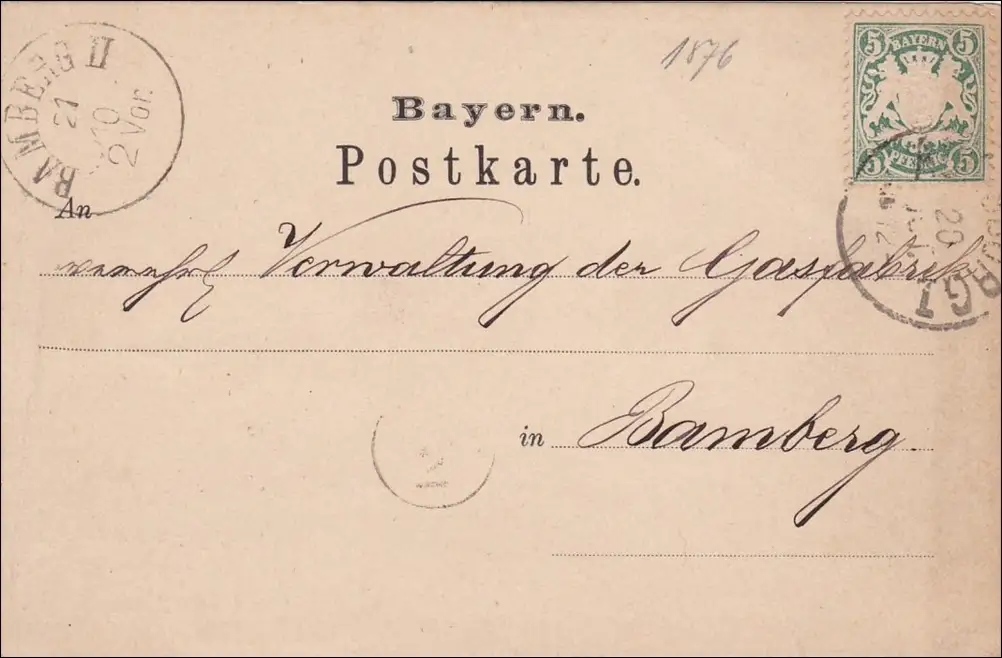 BAMBERG II
21
10
2 Vor.
1876
5 BAYERN 5
5 PFENNIG 5
20
Bayern.
Postkarte.
An
verehrl Verwaltung der Gasfabrik
in Bamberg.